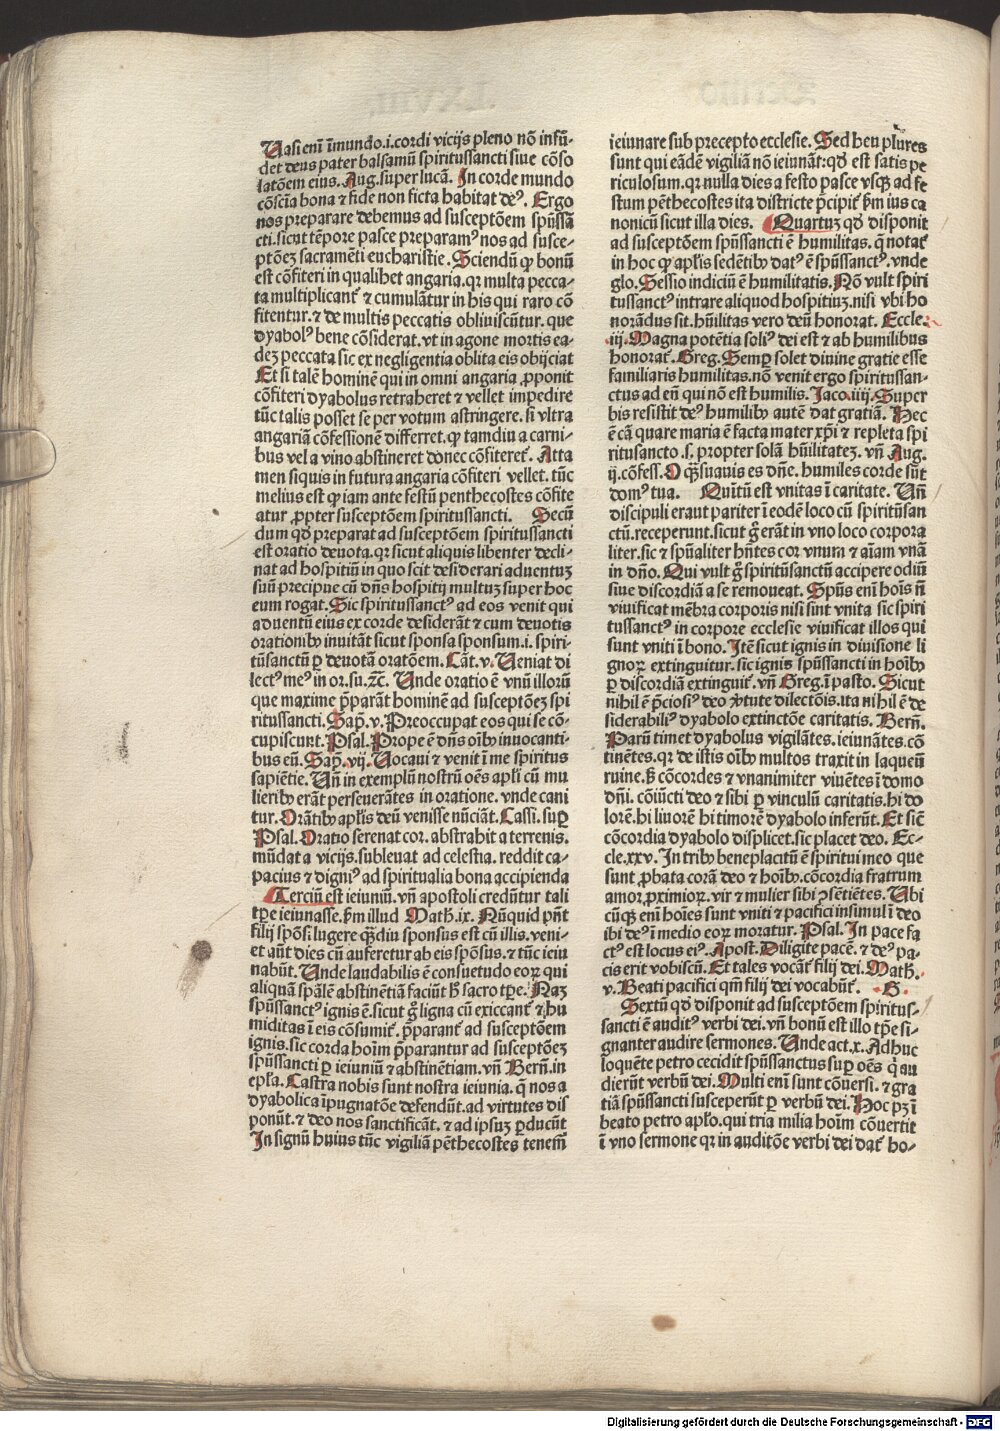 Uasi enī īmundo.i.cordi vicijs pleno nō infū-
det deus pater balsamū spiritussancti siue cōso
latōem eius. Aug. super lucā. In corde mundo
cōsciā bona ⁊ fide non ficta habitat deꝰ. Ergo
nos preparare debemus ad susceptōem spūssā
cti. sicut tēpore pasce preparamꝰ nos ad susce-
ptōeꝫ sacramēti eucharistie. Sciendū ꝙ bonū
est cōfiteri in qualibet angaria. qꝛ multa pecca-
ta multiplicant᷑ ⁊ cumulātur in his qui raro cō
fitentur. ⁊ de multis peccatis obliuiscūtur. que
dyabolꝰ bene cōsiderat. vt in agone mortis ea-
deꝫ peccata sic ex negligentia oblita eis obijciat
Et si talē hominē qui in omni angaria ꝓponit
cōfiteri dyabolus retraheret ⁊ vellet impedire
tūc talis posset se per votum astringere. si vltra
angariā cōfessionē differret. ꝙ tamdiu a carni-
bus vel a vino abstineret donec cōfiteret᷑. Atta
men siquis in futura angaria cōfiteri vellet. tūc
melius est ꝙ iam ante festū penthecostes cōfite
atur ꝓpter susceptōem spiritussancti. Secū
dum qꝺ preparat ad susceptōem spiritussancti
est oratio deuota. qꝛ sicut aliquis libenter decli-
nat ad hospitiū in quo scit desiderari aduentuꝫ
suū precipue cū dn̄s hospitij multuꝫ super hoc
eum rogat. Sic spiritussanctꝰ ad eos venit qui
aduentū eius ex corde desiderāt ⁊ cum deuotis
orationibꝰ inuitāt sicut sponsa sponsum. i. spiri-
tūsanctū ꝑ deuotā oratōem. Cāt. v. Ueniat di
lectꝰ meꝰ in or. su. ⁊c̄. Unde oratio ē vnū illorū
que maxime p̄parāt hominē ad susceptōeꝫ spi
ritussancti. Sap̄. v. Preoccupat eos qui se cō-
cupiscunt. Psal. Prope ē dn̄s oībꝰ inuocanti-
bus eū. Sap̄. vij. Uocaui ⁊ venit ī me spiritus
sapiētie. Un̄ in exemplū nostrū oēs apl̄i cū mu
lieribꝰ erāt perseuerātes in oratione. vnde cani
tur. Orātibꝰ apl̄is deū venisse nūciāt. Cassi. suꝑ
Psal. Oratio serenat cor. abstrahit a terrenis.
mūdat a vicijs. subleuat ad celestia. reddit ca-
pacius ⁊ digniꝰ ad spiritualia bona accipienda
Terciū est ieiuniū. vn̄ apostoli credūtur tali
tp̄e ieiunasse. ẜm illud Math. ix. Nūquid pn̄t
filij spōsi lugere qᷓ̄diu sponsus est cū illis. veni-
et aūt dies cū auferetur ab eis spōsus. ⁊ tūc ieiu
nabūt. Unde laudabilis ē consuetudo eoꝝ qui
aliquā spālē abstinētiā faciūt h̄ sacro tp̄e. Naꝫ
spūssanctꝰ ignis ē. sicut ḡ ligna cū exiccant᷑ ⁊ hu
miditas ī eis cōsumit᷑. p̄parant᷑ ad susceptōem
ignis. sic corda hoīm p̄parantur ad susceptōeꝫ
spūssancti ꝑ ieiuniū ⁊ abstinētiam. vn̄ Bern̄. in
epl̄a. Castra nobis sunt nostra ieiunia. q̄ nos a
dyabolica īpugnatōe defendūt. ad virtutes dis
ponūt. ⁊ deo nos sanctificāt. ⁊ ad ipsuꝫ ꝑducūt
In signū huius tūc vigiliā pēthecostes tenem̄
ieiunare sub precepto ecclesie. Sed heu plures
sunt qui eādē vigiliā nō ieiunāt: qꝺ est satis pe
riculosum. qꝛ nulla dies a festo pasce vsqꝫ ad fe
stum pēthecostes ita districte p̄cipit᷑ ẜm ius ca
nonicū sicut illa dies. Quartuꝫ qꝺ disponit
ad susceptōem spūssancti ē humilitas. q̄ notat᷑
in hoc ꝙ apl̄is sedētibꝰ datꝰ ē spūssanctꝰ. vnde
glo. Sessio indiciū ē humilitatis. Nō vult spiri
tussanctꝰ intrare aliquod hospitiuꝫ. nisi vbi ho
norādus sit. hūilitas vero deū honorat. Eccle.
iij. Magna potētia soliꝰ dei est ⁊ ab humilibus
honorat᷑. Greg. Semꝑ solet diuine gratie esse
familiaris humilitas. nō venit ergo spiritussan-
ctus ad eū qui nō est humilis. Jaco. iiij. Super
bis resistit deꝰ humilibꝰ autē dat gratiā. Hec
ē cā quare maria ē facta mater xp̄i ⁊ repleta spi
ritusancto. s. propter solā hūilitateꝫ. vn̄ Aug.
ij. cōfess. O qᷓ̄ suauis es dn̄e. humiles corde sūt
domꝰ tua. Quītū est vnitas ī caritate. Un̄
discipuli eraut pariter ī eodē loco cū spiritūsan
ctū. receperunt. sicut ḡ erāt in vno loco corpora
liter. sic ⁊ spūaliter hn̄tes cor vnum ⁊ aīam vnā
in dn̄o. Qui vult ḡ spiritūsanctū accipere odiū
siue discordiā a se remoueat. Spūs enī hoīs n̄
viuificat mēbra corporis nisi sint vnita sic spiri
tussanctꝰ in corpore ecclesie viuificat illos qui
sunt vniti ī bono. Itē sicut ignis in diuisione li
gnoꝝ extinguitur. sic ignis spūssancti in hoībꝰ
ꝑ discordiā extinguit᷑. vn̄ Greg. ī pasto. Sicut
nihil ē p̄ciosiꝰ deo v̓tute dilectōis. ita nihil ē de
siderabiliꝰ dyabolo extinctōe caritatis. Bern̄.
Parū timet dyabolus vigilātes. ieiunātes. cō
tinētes. qꝛ de istis oībꝰ multos traxit in laqueū
ruine. ẜ cōcordes ⁊ vnanimiter viuētes ī domo
dn̄i. cōiūcti deo ⁊ sibi ꝑ vinculū caritatis. hi do
lorē. hi liuorē hi timorē dyabolo inferūt. Et sic̄
cōcordia dyabolo displicet. sic placet deo. Ec-
cle. xxv. In tribꝰ beneplacitū ē spiritui meo que
sunt ꝓbata corā deo ⁊ hoībꝰ. cōcordia fratrum
amor ꝓximioꝝ. vir ⁊ mulier sibi ꝯsētiētes. Ubi
cūqꝫ enī hoīes sunt vniti ⁊ pacifici insimul ī deo
ibi deꝰ ī medio eoꝝ moratur. Psal. In pace fa
ctꝰ est locus eiꝰ. Apost. Diligite pacē. ⁊ deꝰ pa-
cis erit vobiscū. Et tales vocāt᷑ filij dei. Math.
v. Beati pacifici qm̄ filij dei vocabūt᷑. G
Sextū qꝺ disponit ad susceptōem spiritus-
sancti ē auditꝰ verbi dei. vn̄ bonū est illo tp̄e si-
gnanter audire sermones. Unde act. x. Adhuc
loquēte petro cecidit spūssanctus suꝑ oēs q̇ au
dierūt verbū dei. Multi enī sunt cōuersi. ⁊ gra
tiā spūssancti susceperūt ꝑ verbū dei. Hoc pꝫ ī
beato petro apl̄o. qui tria milia hoīm cōuertit
ī vno sermone qꝛ in auditōe verbi dei dat᷑ ho-
Digitalisierung gefördert durch die Deutsche Forschungsgemeinschaft - DFG